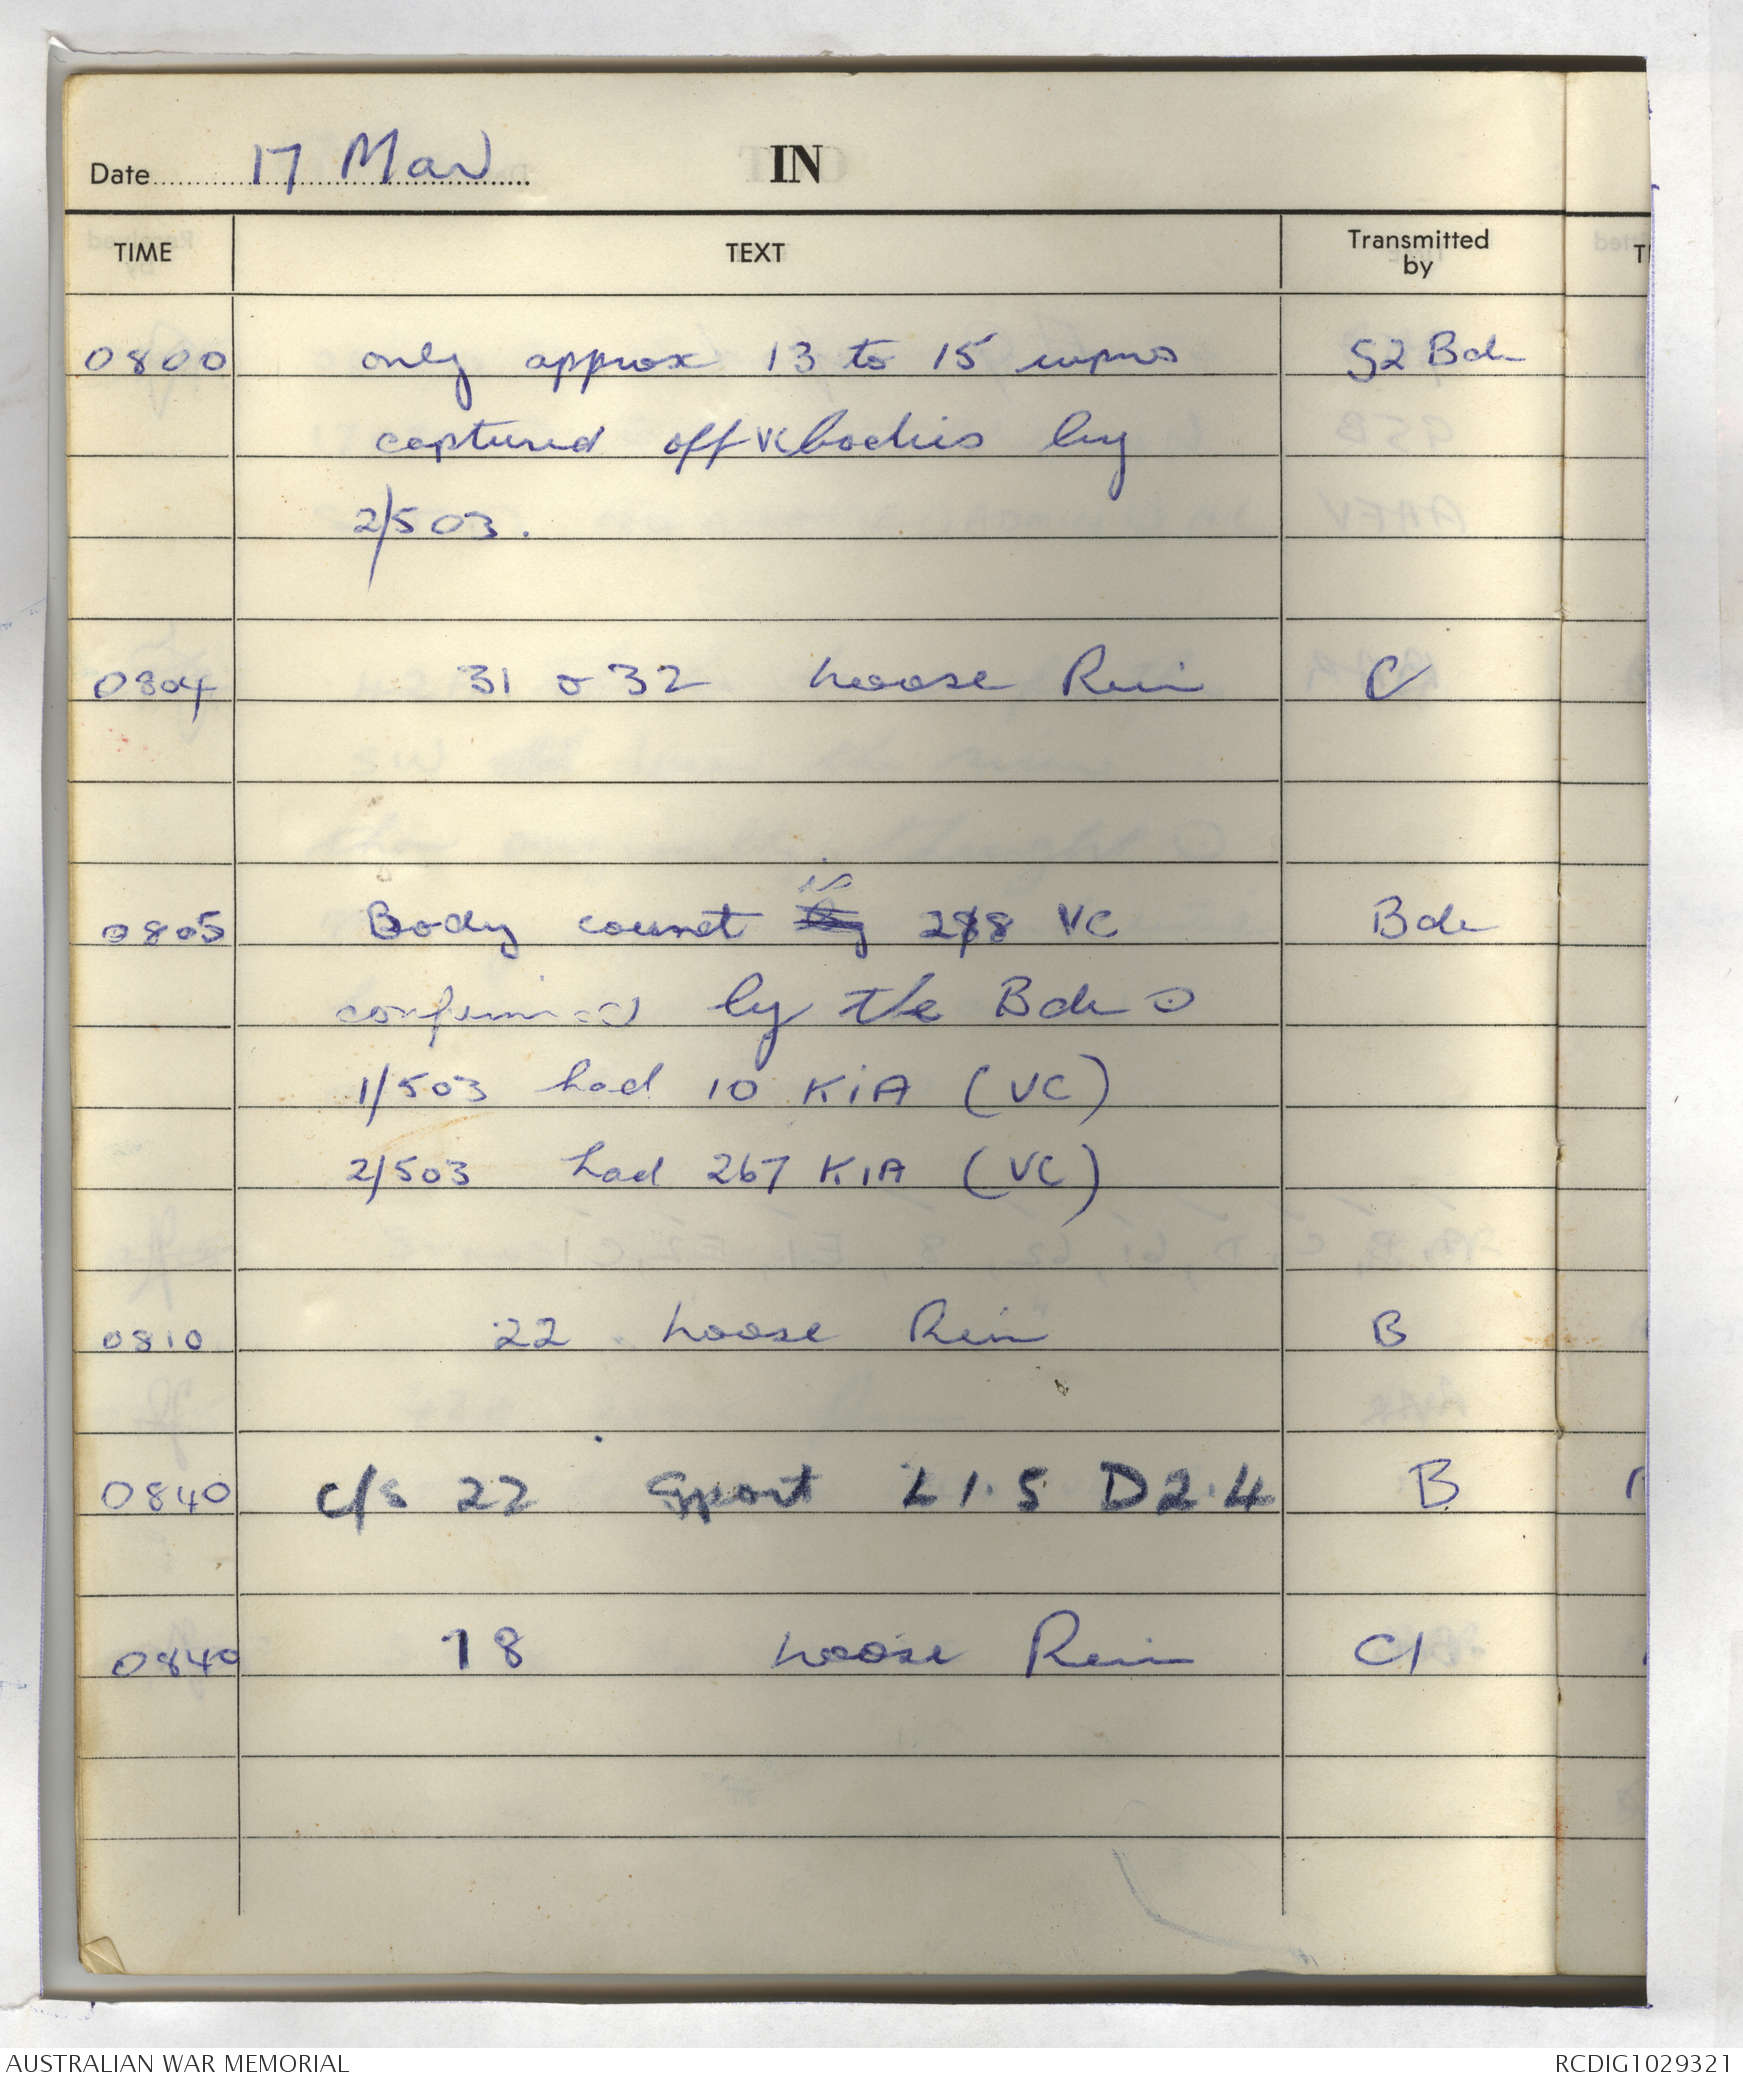 Date 17 Mar IN
TIME TEXT Transmitted by
0800 only approx 13 to 15 wpns S2 Bde
captured off VC bodies by
2/503.
0804 31 & 32 noose Rein C
0805 Body count is 288 VC Bde
confirmed by the Bde
1/503 had 10 KIA (VC)
2/503 had 267 KIA (VC)
0810 22 noose Rein B
0840 c/s 22 L1.5 D2.4 B
0840 18 noose Rein C1
AUSTRALIAN WAR MEMORIAL RCDIG1029321